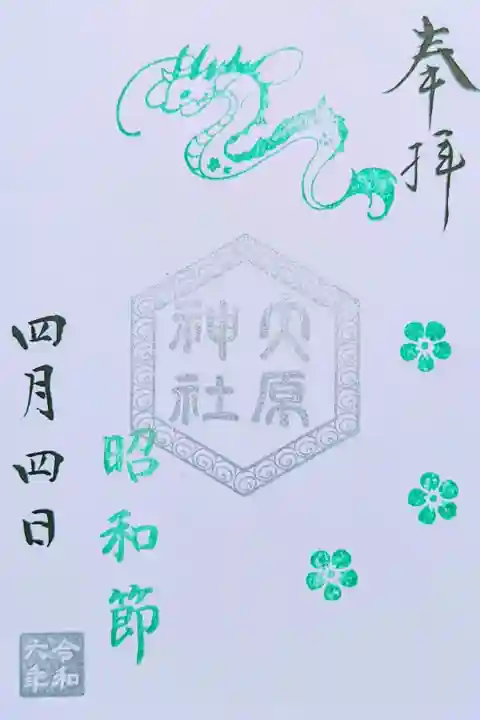 奉拝
大原
神社
昭和節
四月四日
令和
六年